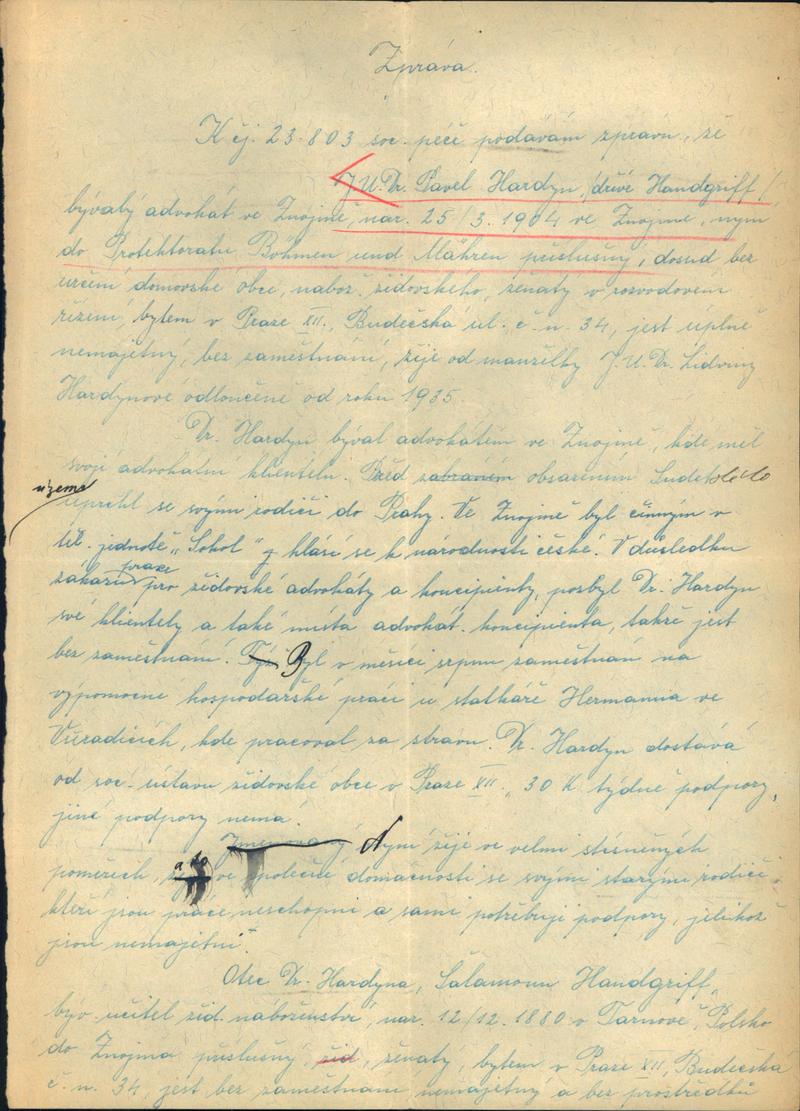 Zpráva.
K čj. 23.803 soc. péče podávám zprávu, že
J.U.Dr. Pavel Hardyn, /dříve Handgriff/
bývalý advokát ve Znojmě, nar. 25/3.1904 ve Znojmě, nyní
do Protektoratu Böhmen und Mähren příslušný, dosud bez
určení domovské obce, nábož. židovského, ženatý v rozvodovém
řízení, bytem v Praze XII., Budečská ul. č. n. 34, jest úplně
nemajetný, bez zaměstnání, žije od manželky J.U.Dr. Lidviny
Hardynové odloučeně od roku 1935.
Dr. Hardyn býval advokátem ve Znojmě, kde měl
svoji advokátní klientelu. Před zabraném obsazením Sudetského
území
uprchl se svými rodiči do Prahy. Ve Znojmě byl činným v
těl. jednotě „Sokol" a hlásí se k národnosti české. V důsledku
zákazu praxe pro židovské advokáty a koncipienty, pozbyl Dr. Hardyn
své klientely a také místa advokát. koncipienta, takže jest
bez zaměstnání. Byl v měsíci srpnu zaměstnán na
výpomocné hospodářské práci u statkáře Hermanna ve
Vinařicích, kde pracoval za stravu. Dr. Hardyn dostává
od soc. ústavu židovské obce v Praze XII. 30 K týdně podpory,
jiné podpory nemá.
Jmenovaný Nyní žije ve velmi stísněných
poměrech a to ve společné domácnosti se svými starými rodiči
kteří jsou práce neschopni a sami potřebují podpory, jelikož
jsou nemajetní.
Otec Dr. Hardyna, Salamoun Handgriff,
býv. učitel žid. náboženství, nar. 12/12.1880 v Tarnově, Polsko
do Znojma příslušný, žid, ženatý, bytem v Praze XII, Budečská
č. n. 34, jest bez zaměstnání nemajetný a bez prostředků